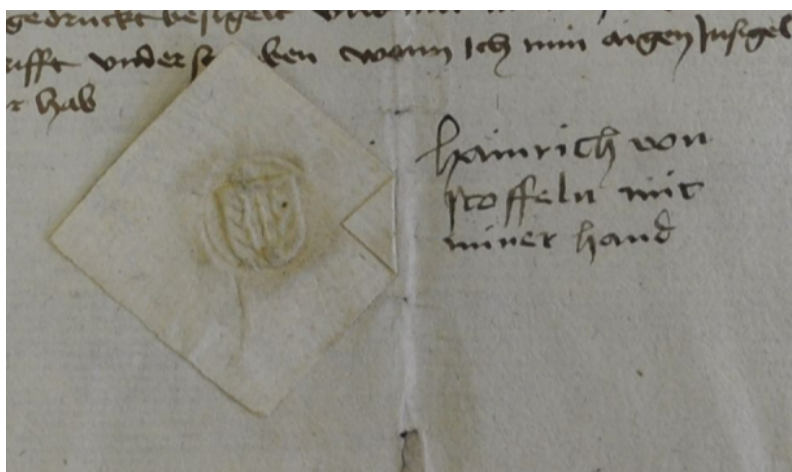 gedruckt besigelt vnd mit
rifft vnders ben wann Ich min aigen Insigel
r hab
hainrich von
stoffeln mit
miner hand